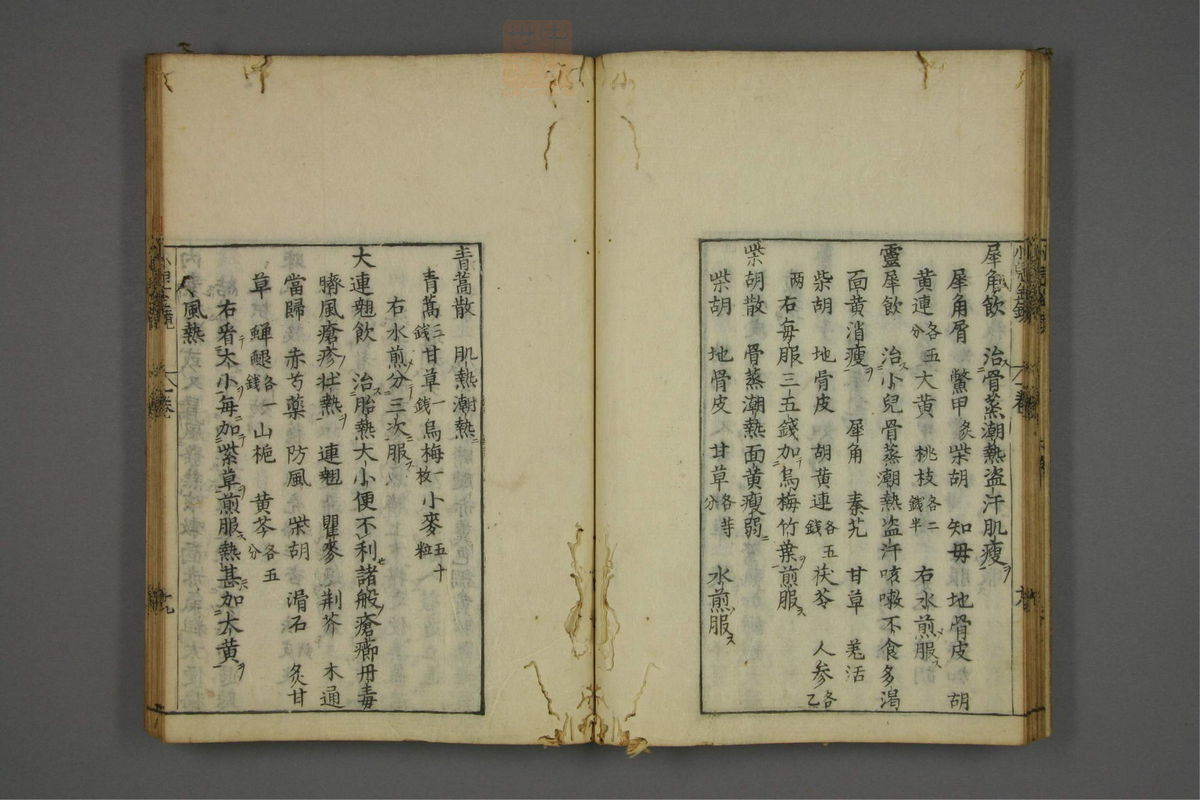 犀角飲 治骨蒸潮熱盗汗肌瘦ヲ
犀角屑 鱉甲炙 柴胡 知毋 地骨皮 加胡
黄連各五分 大黄 桃枝各二錢半 右水煎服ス
靈犀飲 治ス小兒骨蒸潮熱盗汗咳嗽不食多渇
面黄消瘦ヲ 犀角 秦艽 甘草 羌活
柴胡 地骨皮 胡黄連各五錢 茯苓 人參各乙
两 右毎服三五錢加烏梅竹葉ヲ煎服ス
柴胡散 骨蒸潮熱面黄瘦弱ニ
柴胡 地骨皮 甘草各等分 水煎服ス
青蒿散 肌熱潮熱ニ
青蒿三錢 甘草一錢 烏梅一枚 小麥五十粒
右水煎分三次ニ服ス
大連翹飲 治ス胎熱大小便不利諸般瘡癤丹毒
臍風瘡疹壮熱ヲ 連翹 瞿麥 荆芥 木通
當歸 赤芍藥 防風 柴胡 滑石 炙甘
草 蟬腿各一錢 山梔 黄芩各五分
右看大小ヲ毎ニ加紫草ヲ煎服ス熱甚加大黄ヲ
風熱